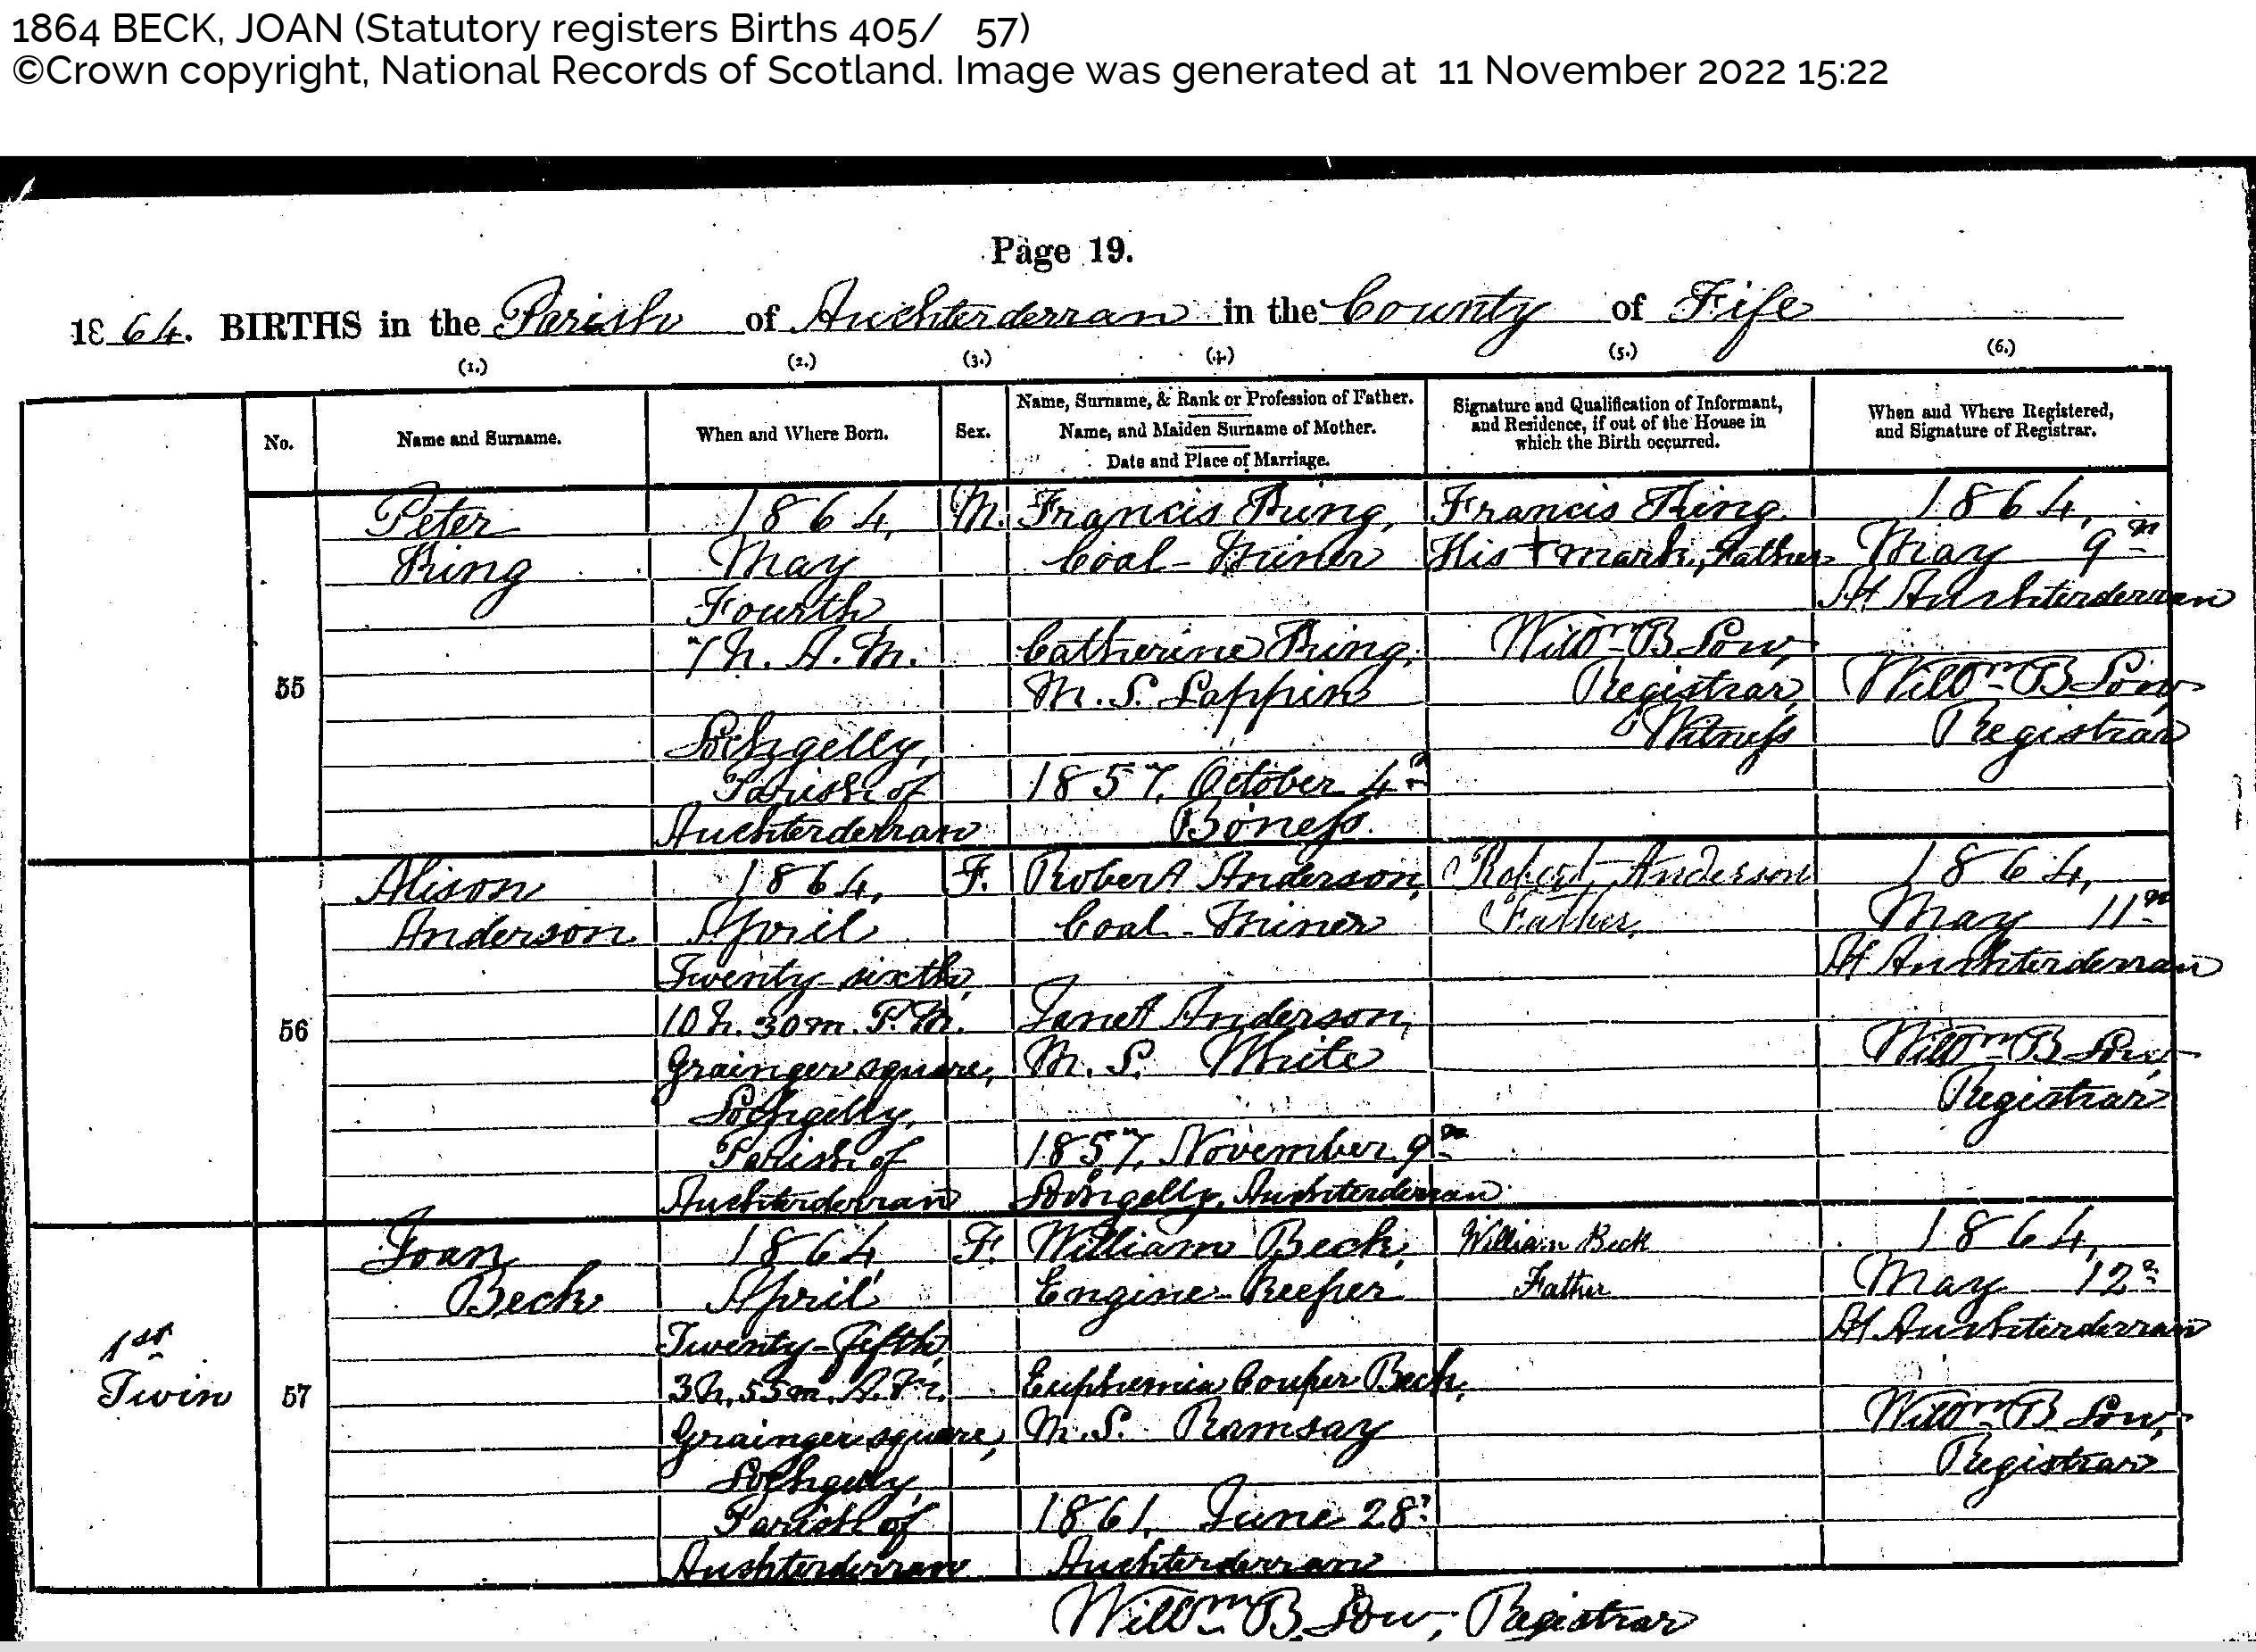 1864 BECK, JOAN (Statutory registers Births 405/ 57)
©Crown copyright, National Records of Scotland. Image was generated at 11 November 2022 15:22
Page 19.
1864. BIRTHS in the Parish of Auchterderran in the County of Fife
(1.) (2.) (3.) (4.) (5.) (6.)
No.
Name and Surname.
When and Where Born.
Sex.
Name, Surname, & Rank or Profession of Father.
Name, and Maiden Surname of Mother.
Date and Place of Marriage.
Signature and Qualification of Informant,
and Residence, if out of the House in
which the Birth occurred.
When and Where Registered,
and Signature of Registrar.
55
Peter
King
1864,
May
Fourth,
7h. A.M.
Lochgelly,
Parish of
Auchterderran
M.
Francis King,
Coal-Miner
Catherine King,
M.S. Lappin
1857, October 4th
Boness.
Francis King
His + mark, Father
Willm B Low,
Registrar,
Witness
1864,
May 9th
At Auchterderran
Willm B Low,
Registrar
56
Alison
Anderson
1864,
April
Twenty-sixth,
10h. 30m. P.M.
Grainger square,
Lochgelly,
Parish of
Auchterderran
F.
Robert Anderson,
Coal-Miner
Janet Anderson,
M.S. White
1857, November 9th
Lochgelly, Auchterderran
Robert Anderson
Father.
1864,
May 11th
At Auchterderran
Willm B Low,
Registrar
1st
Twin
57
Joan
Beck
1864,
April,
Twenty-fifth,
3h. 55m. A.M.
Grainger square,
Lochgelly,
Parish of
Auchterderran
F.
William Beck,
Engine-Keeper
Euphemia Couper Beck,
M.S. Ramsay
1861, June 28th
Auchterderran
William Beck
Father
1864,
May 12th
At Auchterderran
Willm B Low,
Registrar
Willm B Low, Registrar